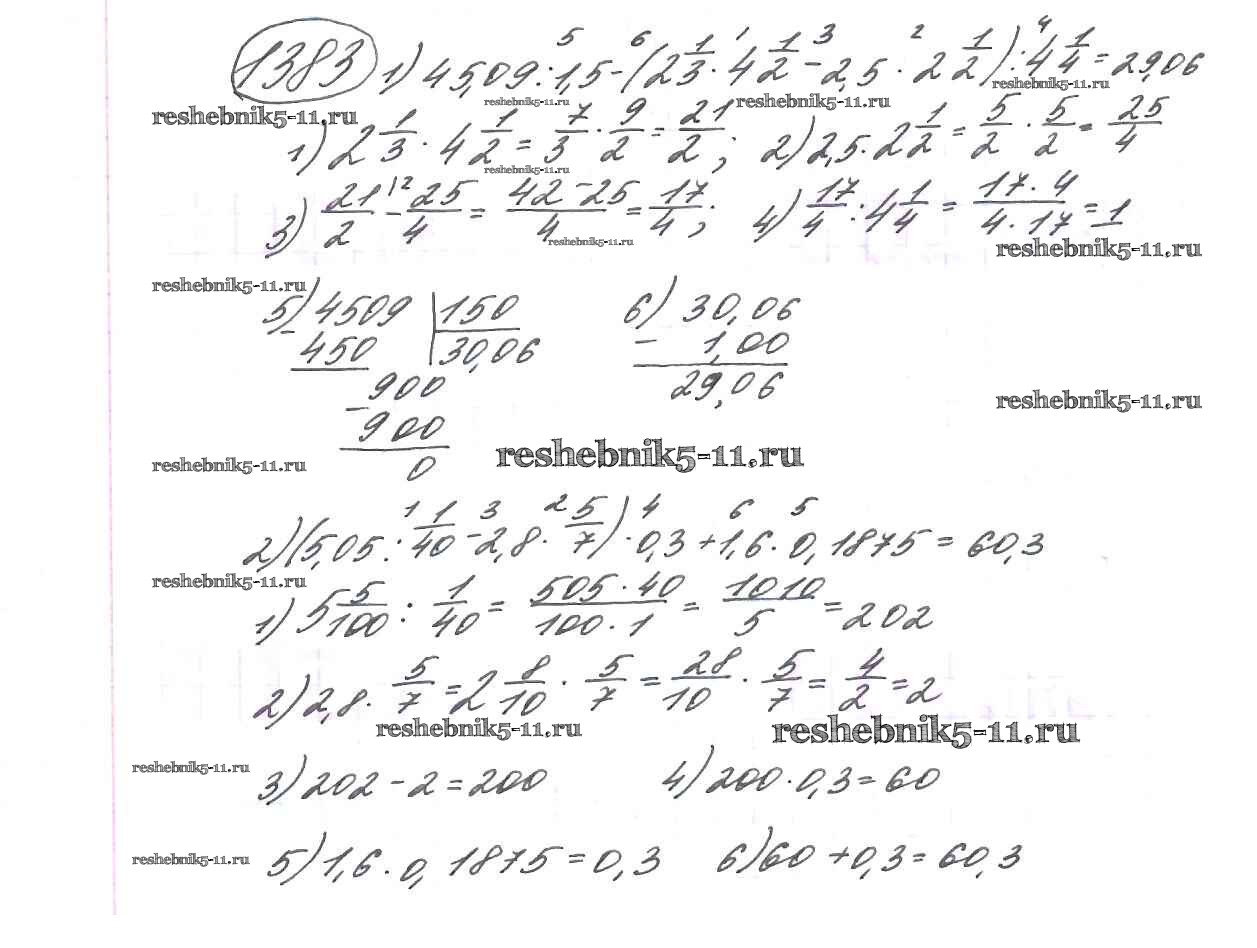 1383 1) 45,09 : 1,5 - (2 1/3 · 4 1/2 - 2,5 · 2 1/2) : 4 1/4 = 29,06
5 6 1 3 2 4
reshebnik5-11.ru reshebnik5-11.ru reshebnik5-11.ru reshebnik5-11.ru
1) 2 1/3 · 4 1/2 = 7/3 · 9/2 = 21/2; 2) 2,5 · 2 1/2 = 5/2 · 5/2 = 25/4
reshebnik5-11.ru
3) 21/2 \2 - 25/4 = 42-25/4 = 17/4; 4) 17/4 : 4 1/4 = 17·4/4·17 = 1
reshebnik5-11.ru reshebnik5-11.ru
reshebnik5-11.ru
5) 4509 | 150 6) 30,06
- 450 | 30,06 - 1,00
900 29,06
- 900 reshebnik5-11.ru
0
reshebnik5-11.ru reshebnik5-11.ru
1 3 2 4 6 5
2) (5,05 : 1/40 - 2,8 · 5/7) · 0,3 + 1,6 · 0,1875 = 60,3
reshebnik5-11.ru
1) 5 5/100 : 1/40 = 505·40/100·1 = 1010/5 = 202
2) 2,8 · 5/7 = 2 8/10 · 5/7 = 28/10 · 5/7 = 4/2 = 2
reshebnik5-11.ru reshebnik5-11.ru
reshebnik5-11.ru 3) 202 - 2 = 200 4) 200 · 0,3 = 60
reshebnik5-11.ru 5) 1,6 · 0,1875 = 0,3 6) 60 + 0,3 = 60,3